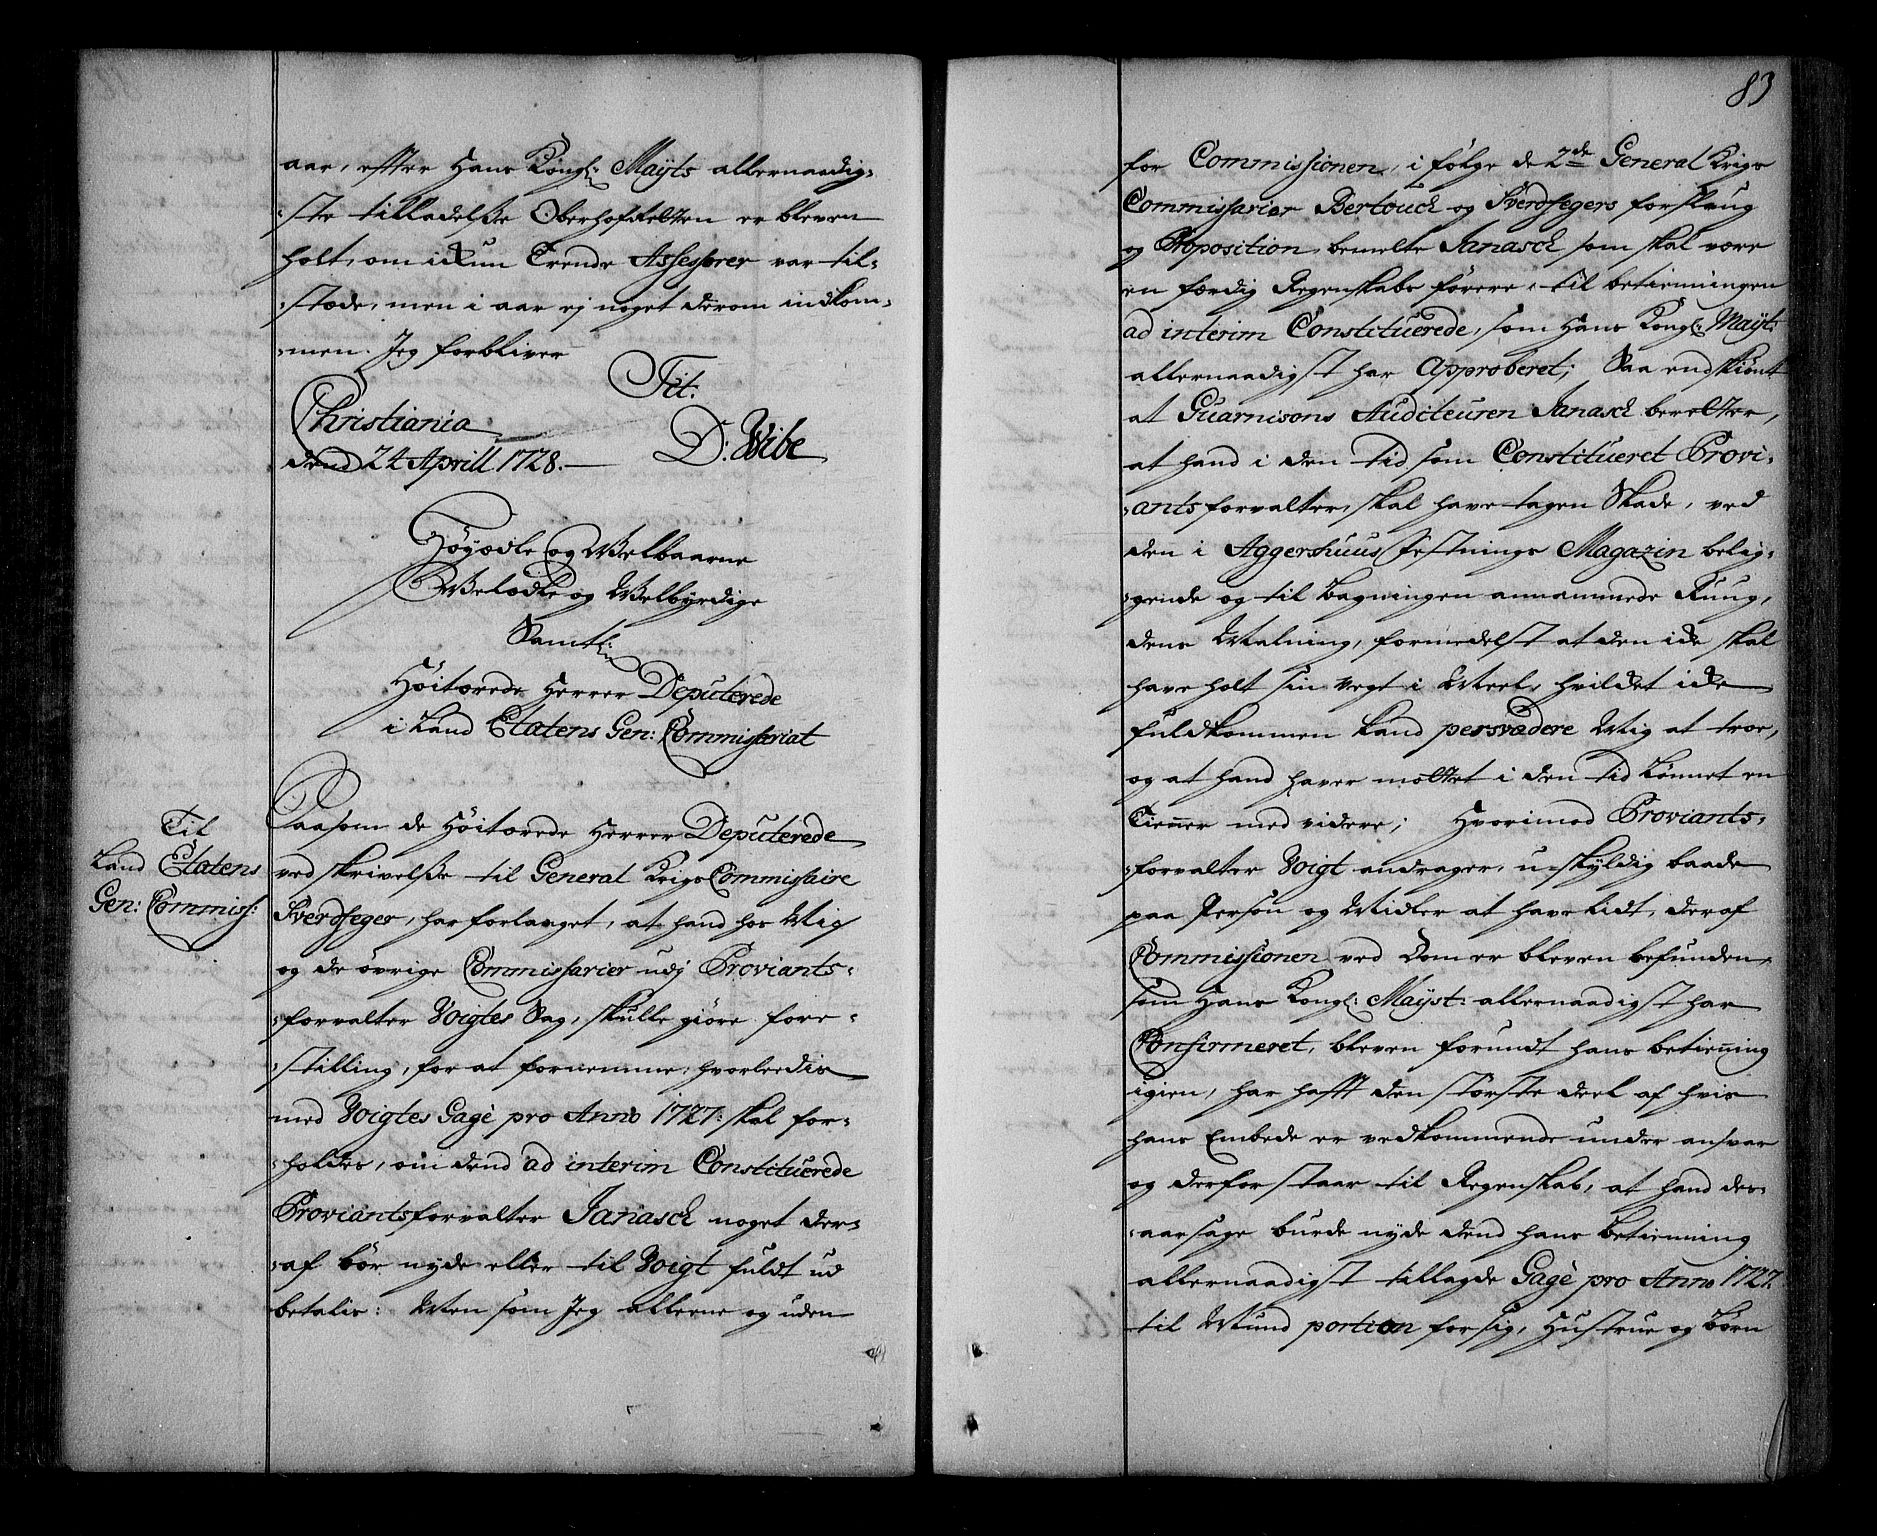 aar, efter Hans Kongl: Mayts allernaadig-
ste tilladelße Oberhofretten er bleven
holt, om ickun Trende Assessorer var til-
stede, men i aar ej noget derom indkom-
men. Jeg forbliver
Tit.
Christiania
dend 24 Aprill 1728.
D: Wibe
Höyædle og Welbaarne
Welædle og Welbyrdige
Samtl:
Höitærede Herrer Deputerede
i Land Etatens Gen: Commissariat
Til
Land Etatens
Gen: Commiss:
Saasom de Höitærede Herrer Deputerede
ved skrivelße til General Krigs Commissaire
Sverdfeger, har forlanget, at hand hos Mig
og de övrige Commissarier udj Proviants-
forvalter Voigtes Sag, skulle giöre fore-
stilling, for at fornemme, hvorledis
med Voigtes Gagè pro Anno 1727: skal for-
holdes, om dend ad interim Constituerede
Proviantsforvalter Janasch noget der-
af bör nyde eller til Voigt fuldt ud
betalis: Men som Jeg allene og uden
83
for Commissionen, i fölge de 2de General Krigs
Commissarier Bertouch og Sverdfegers forslaug
og Proposition, bemelte Janasch som skal være
en færdig Regenskabs förere, til betienningen
ad interim Constituerede, som Hans Kongl: Mayt:
allernaadigst har Approberet; Saa endskiönt
at Guarnisons Auditeuren Janasch beretter,
at hand i den tid som Constitueret Provi-
antsforvalter, skal have tagen Skade, ved
den i Aggershuus Festnings Magazin belig-
gende og til bagningen annammede Ruug,
dens Malning, formedelst at den icke skal
have holt sin vegt i Meel, hvilcket icke
fuldkommen kand persvadere Mig at troe,
og at hand haver mottet i den tid lönnet en
Tienner med videre; Hvorimod Proviants-
forvalter Voigt andrager, u-skyldig baade
paa Person og Midler at have lidt, deraf
Commissionen ved Dom er bleven befunden,
som Hans Kongl: Mayst: allernaadigst har
Confirmeret, bleven forundt hans betienning
igien, har hafft den störste deel af hvis
hans Embede er vedkommende under ansvar
og derfor staar til Regenskab, at hand des-
aarsage burde nyde dend hans betienning
allernaadigst tillagde Gagè pro Anno 1727.
til Mund portion for sig, Hustrue og Börn